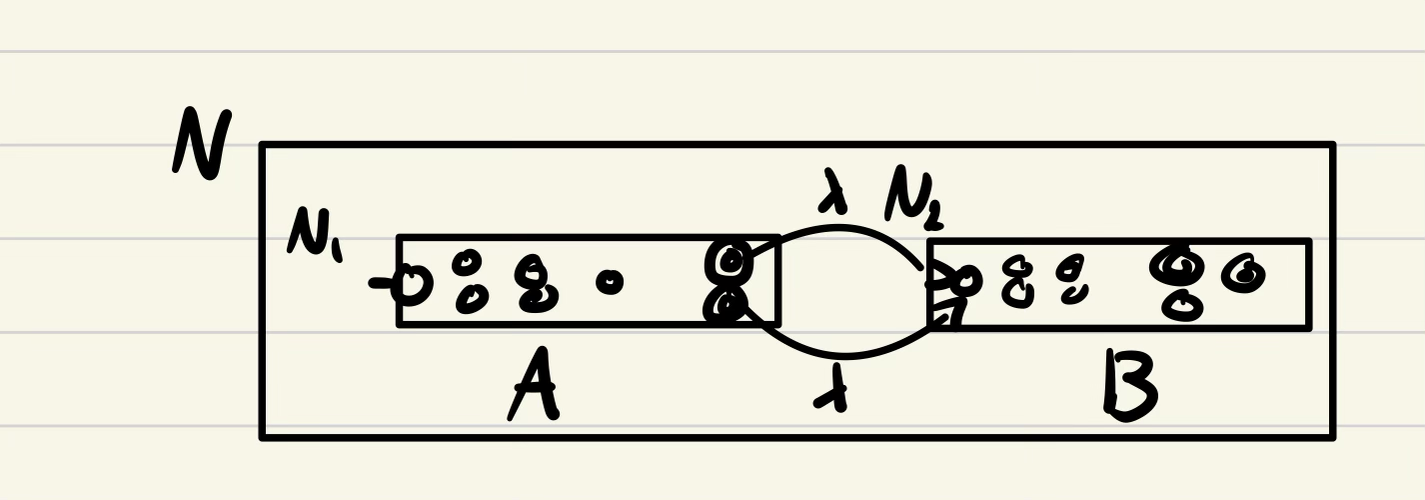 N
N₁
λ N₂
A
λ
B